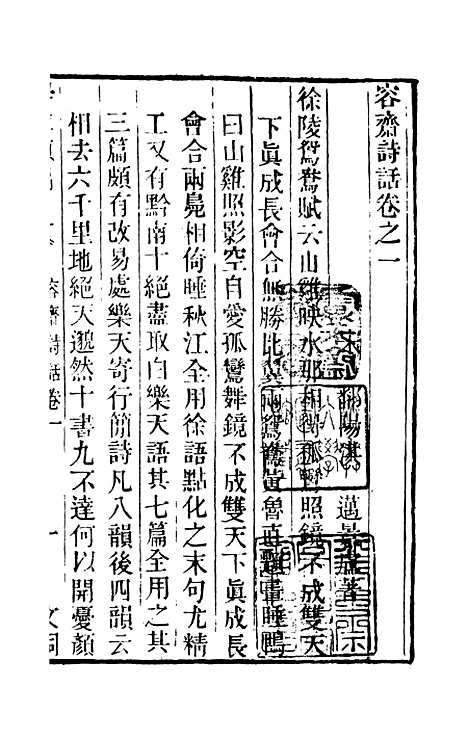 容齋詩話卷之一
鄱陽洪 邁景盧著
徐陵鴛鴦賦云山雞映水那相得孤鸞照鏡不成雙天
下眞成長會合無勝比翼兩鴛鴦黃魯直題畫睡鴨
曰山雞照影空自愛孤鸞舞鏡不成雙天下眞成長
會合兩鳧相倚睡秋江全用徐語點化之末句尤精
工又有黔南十絕盡取白樂天語其七篇全用之其
三篇頗有改易處樂天寄行簡詩凡八韻後四韻云
相去六千里地絕天邈然十書九不達何以開憂顏
容齋詩話卷一 一